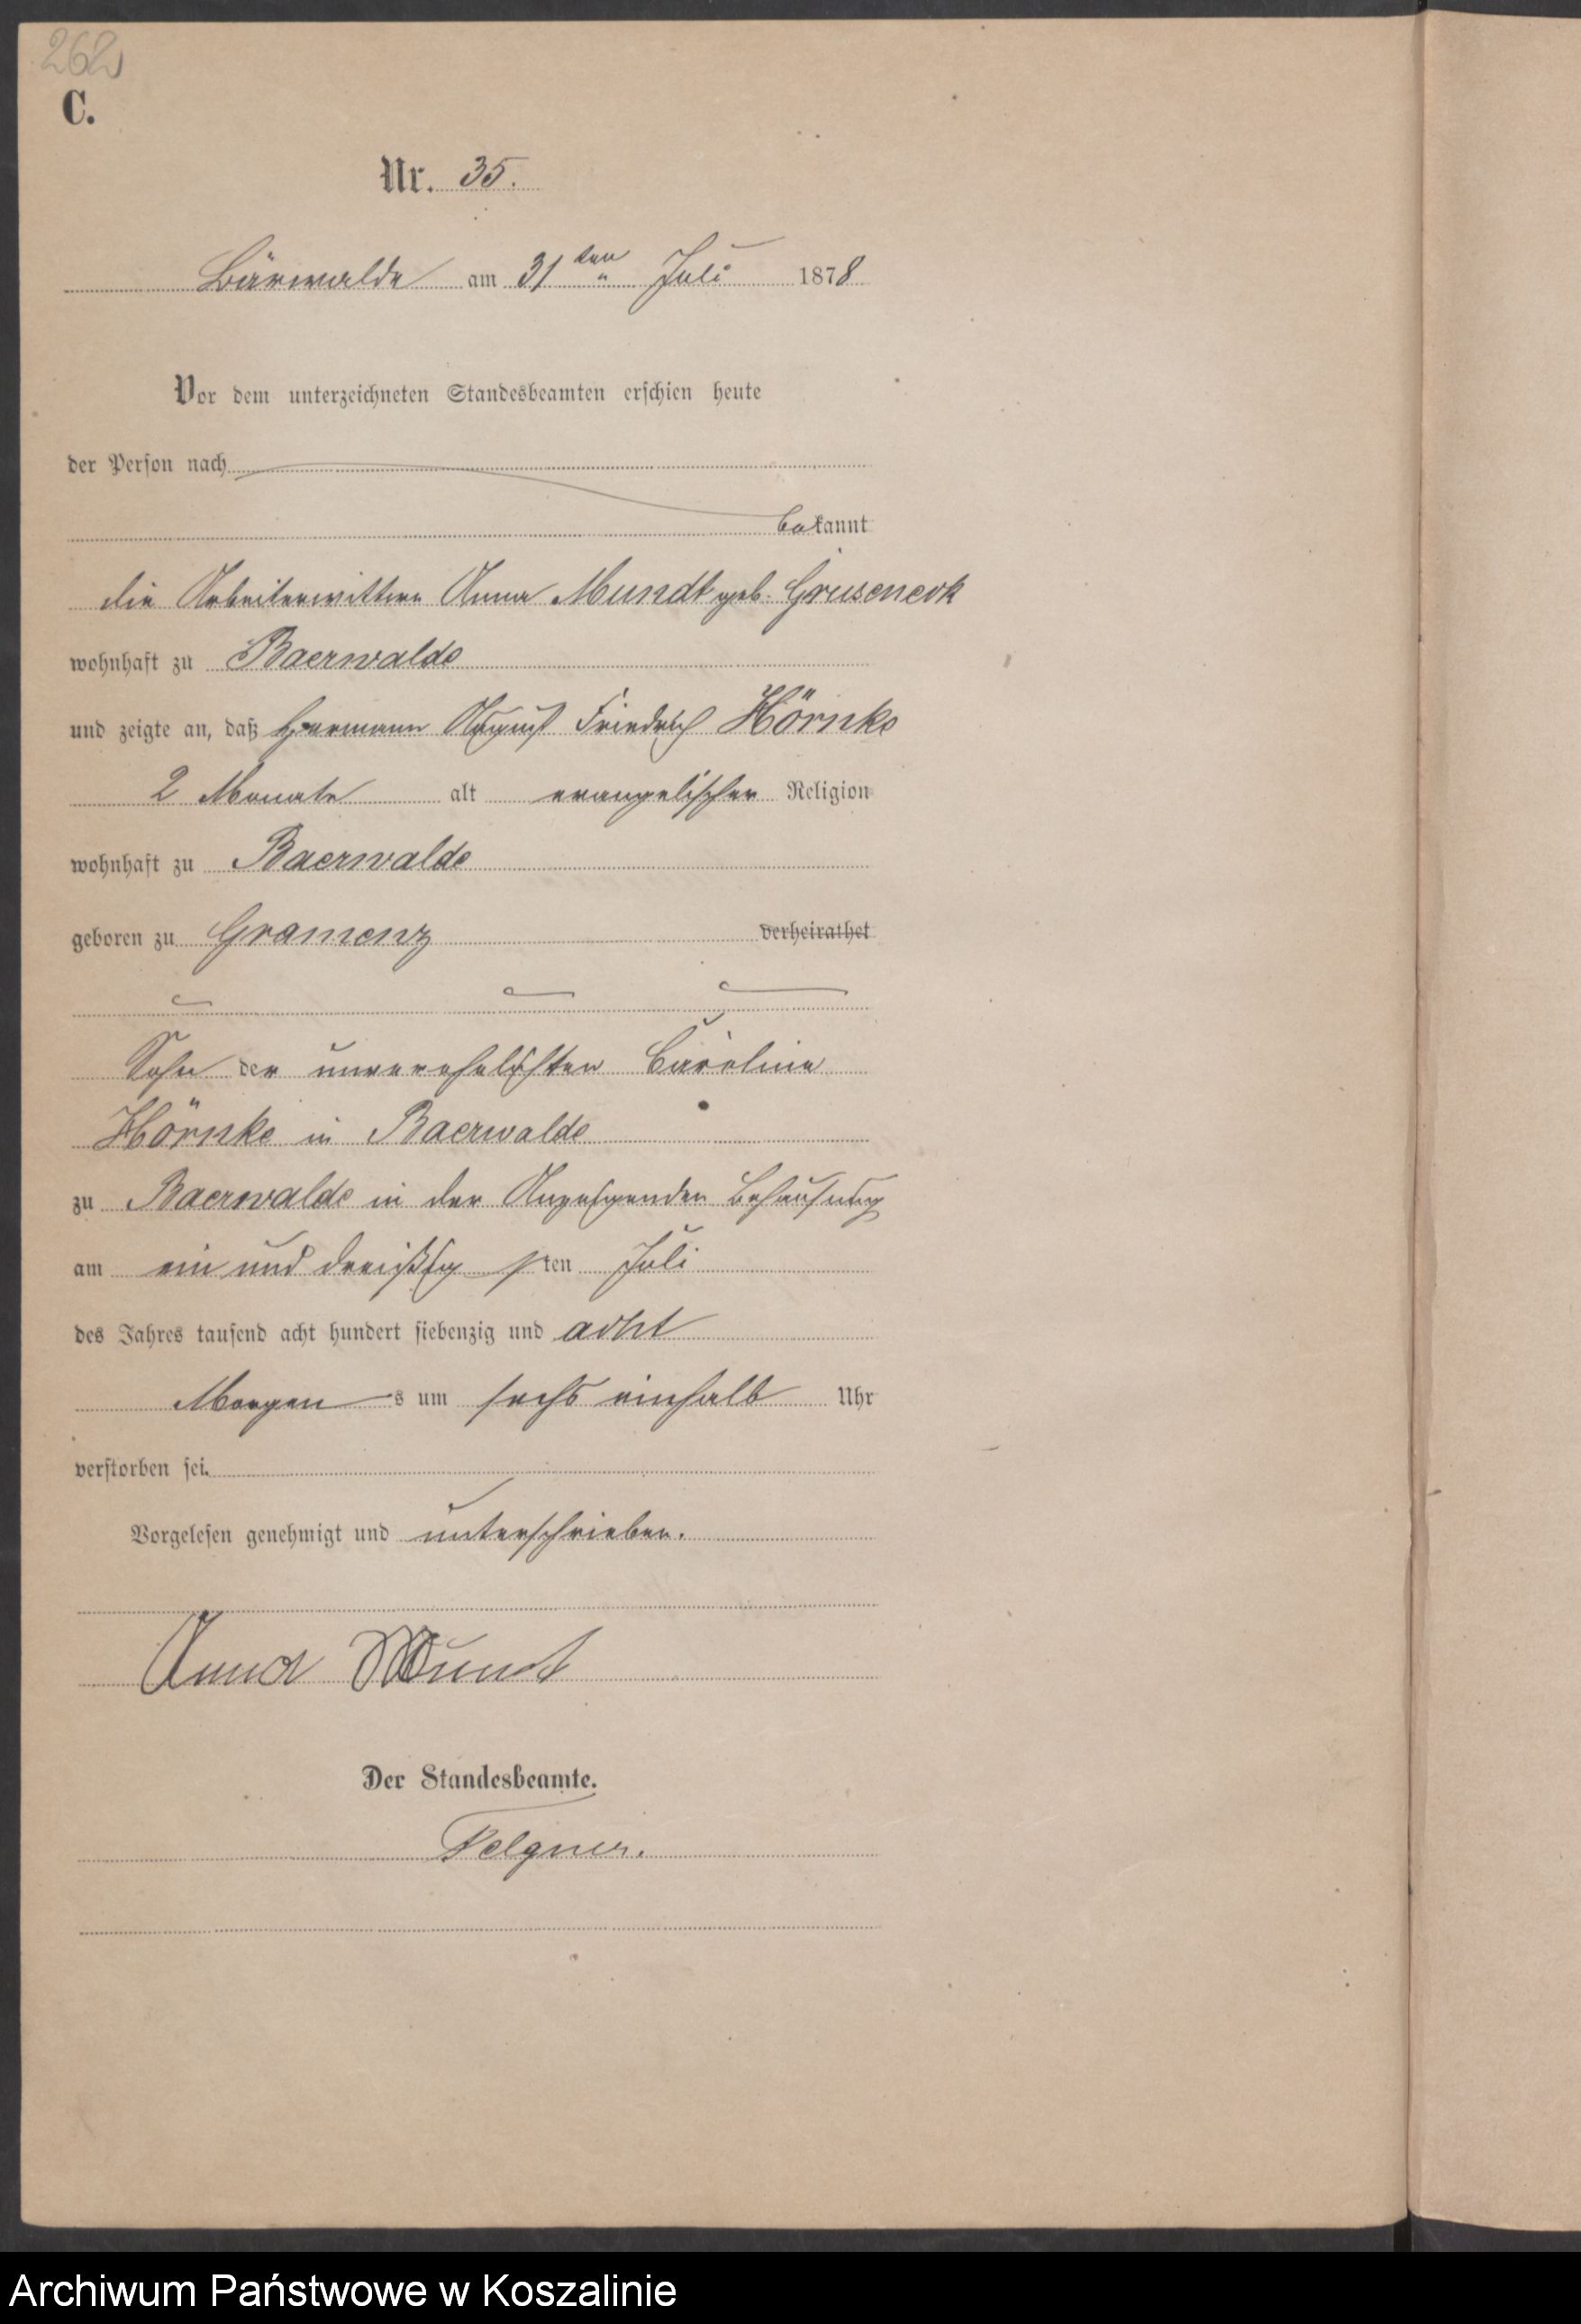 262
C.
Nr. 35.
Bärwalde am 31ten Juli 1878
Vor dem unterzeichneten Standesbeamten erschien heute
der Person nach
bekannt
die Arbeiterwittwe Anna Mundt geb. Gruseneck
wohnhaft zu Baerwalde
und zeigte an, daß Hermann August Friedrich Hörnke
2 Monate alt evangelischer Religion
wohnhaft zu Baerwalde
geboren zu Gramenz verheirathet
Sohn der unverehelichten Caroline
Hörnke in Baerwalde
zu Baerwalde in der Anzeigenden Behausung
am ein und dreißigsten Juli
des Jahres tausend acht hundert siebenzig und acht
Morgens um sechs einhalb Uhr
verstorben sei.
Vorgelesen genehmigt und unterschrieben.
Anna Mundt
Der Standesbeamte.
Felgner.
Archiwum Państwowe w Koszalinie